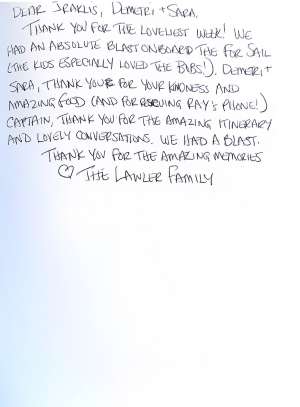 DEAR IRAKLIS, DEMETRI + SARA.
THANK YOU FOR THE LOVELIEST WEEK! WE
HAD AN ABSOLUTE BLAST ONBOARD THE FOR SAIL
(THE KIDS ESPECIALLY LOVED THE BIBS!). DEMETRI +
SARA, THANK YOU FOR YOUR KINDNESS AND
AMAZING FOOD (AND FOR RESCUING RAY'S PHONE!)
CAPTAIN, THANK YOU FOR THE AMAZING ITINERARY
AND LOVELY CONVERSATIONS. WE HAD A BLAST.
THANK YOU FOR THE AMAZING MEMORIES
♡ THE LAWLER FAMILY